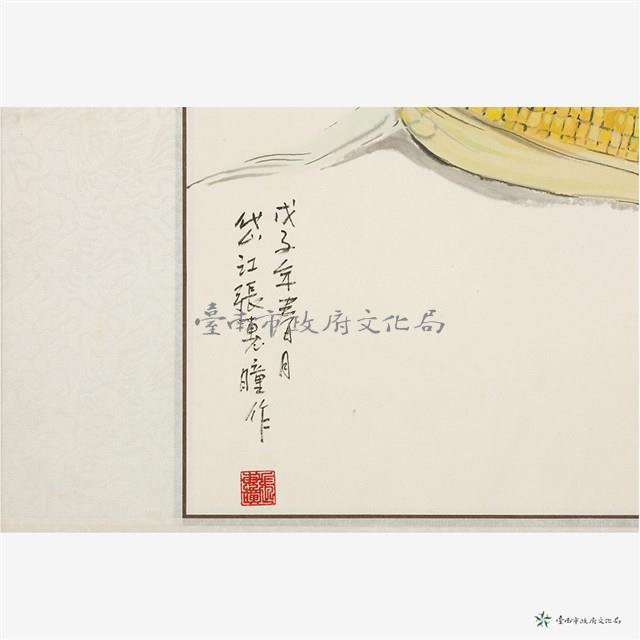 戊子年月
岱江張作
臺南市政府文化局
臺南市政府文化局